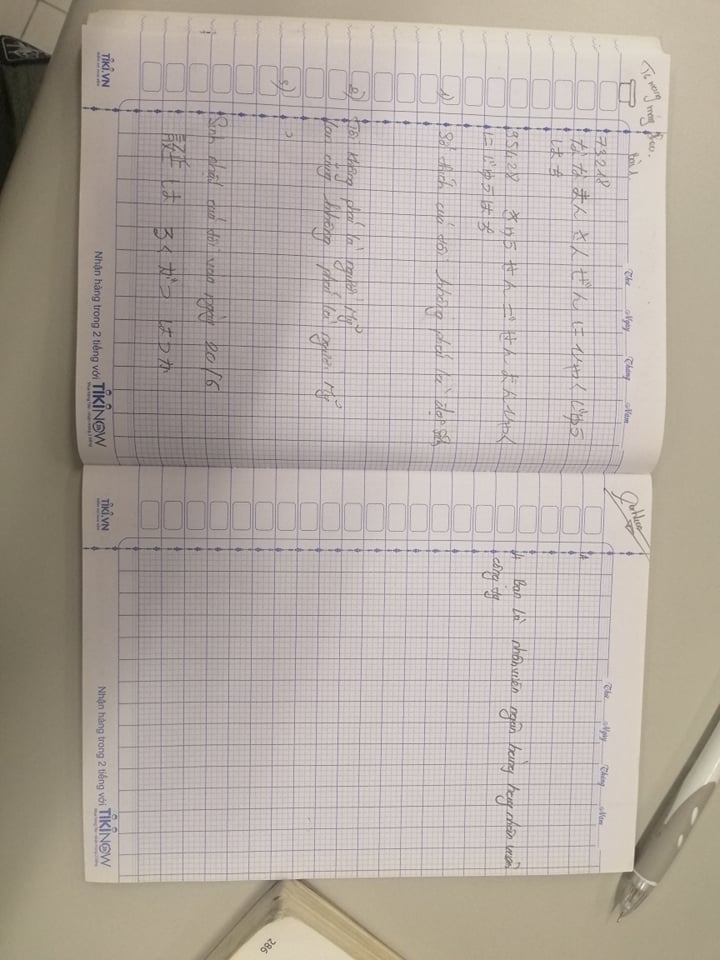 Bài 1.
Thứ Ngày Tháng Năm
73218
ななまんさんぜんにひゃくじゅう
はち
95428 きゅうせんごせんよんひゃく
にじゅうはち
1) Sở thích của tôi không phải là đọc
2) Tôi không phải là người Mỹ
Lan cũng không phải là người Mỹ
3)
Sinh nhật của tôi vào ngày 20/6
誕は ろくがつ はつか
TIKI.VN
Nhận hàng trong 2 tiếng với TIKINOW
Thứ Ngày Tháng Năm
4 Bạn là nhân viên ngân hàng hay nhân viên
công ty
TIKI.VN
Nhận hàng trong 2 tiếng với TIKINOW
286